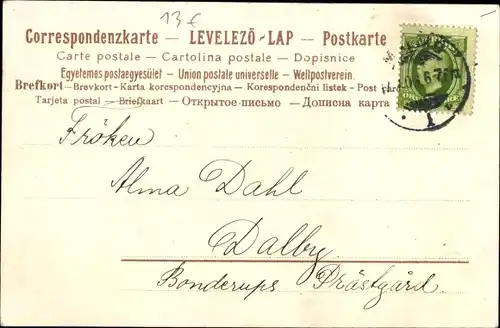 13 €
Correspondenzkarte — LEVELEZŐ-LAP — Postkarte
Carte postale — Cartolina postale — Dopisnice
Egyetemes postaegyesület — Union postale universelle — Weltpostverein.
Brefkort — Brevkort - Karta korespondencyjna — Korespondenční listek - Post
Tarjeta postal — Briefkaart — Открытое письмо — Дописна карта
1
Fröken
Alma Dahl
Dalby
Bonderups Prästgård.